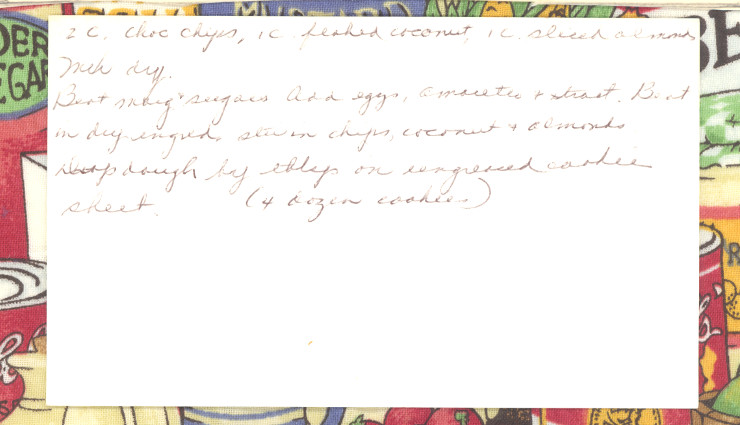 MUSTARD
DER
EGAR
BE
2 C. choc chips, 1 C. flaked coconut, 1 C. sliced almonds
Mix dry.
Beat marg & sugars Add eggs, amaretto + extract. Beat
in dry ingred. stir in chips, coconut + almonds
drop dough by tblsp on ungreased cookie
sheet. (4 dozen cookies)